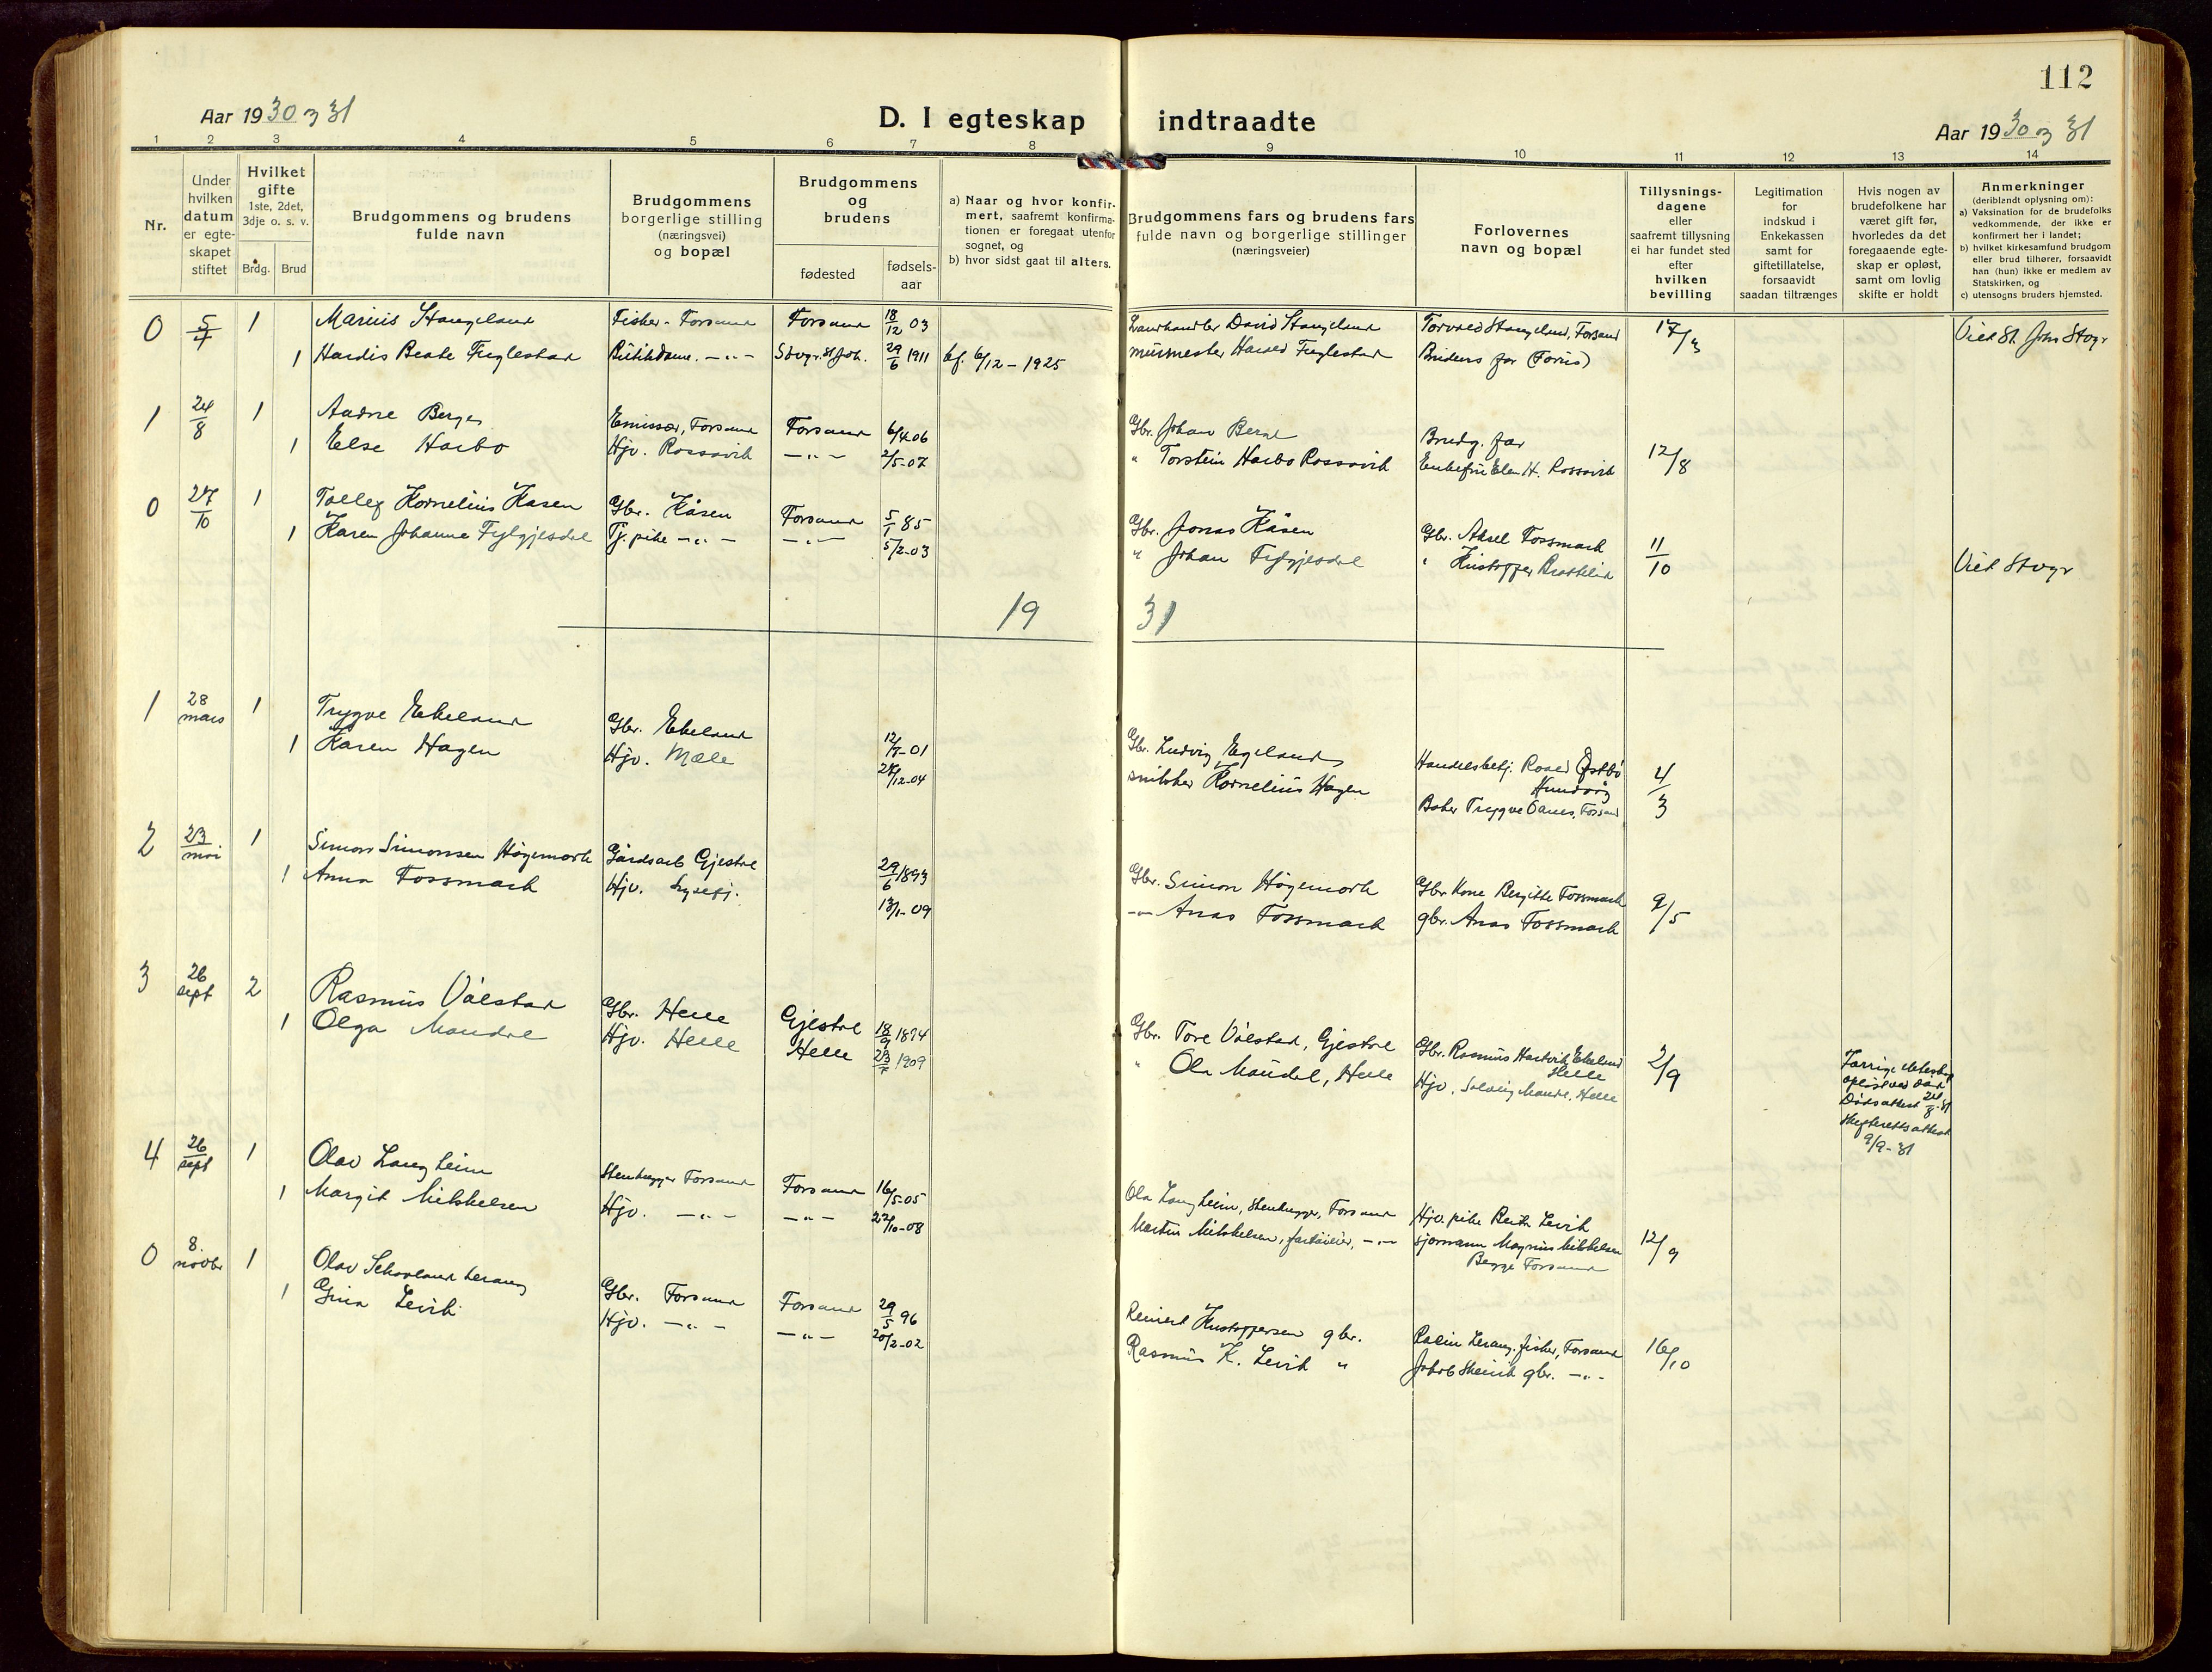 112
Aar 1930 og 31
D. I egteskap indtraadte
Aar 1930 og 31
1 2 3 4 5 6 7 8 9 10 11 12 13 14
Nr.
Under hvilken datum er egteskapet stiftet
Hvilket gifte 1ste, 2det, 3dje o. s. v.
Brdg. Brud
Brudgommens og brudens fulde navn
Brudgommens borgerlige stilling (næringsvei) og bopæl
Brudgommens og brudens
fødested
fødsels-aar
a) Naar og hvor konfir-
mert, saafremt konfirma-
tionen er foregaat utenfor
sognet, og
b) hvor sidst gaat til alters.
Brudgommens fars og brudens fars
fulde navn og borgerlige stillinger
(næringsveier)
Forlovernes
navn og bopæl
Tillysnings-
dagene
eller
saafremt tillysning
ei har fundet sted
efter
hvilken
bevilling
Legitimation
for
indskud i
Enkekassen
samt for
giftetillatelse,
forsaavidt
saadan tiltrænges
Hvis nogen av
brudefolkene har
været gift før,
hvorledes da det
foregaaende egte-
skap er opløst,
samt om lovlig
skifte er holdt
Anmerkninger
(deriblandt oplysning om):
a) Vaksination for de brudefolks
vedkommende, der ikke er
konfirmert her i landet;
b) hvilket kirkesamfund brudgom
eller brud tilhører, forsaavidt
han (hun) ikke er medlem av
Statskirken, og
c) utensogns bruders hjemsted.
0 5/7 1 Marius Stangeland Fisker - Forsand Forsand 18/12 03 Landhandler David Stangeland Torvald Stangeland, Forsand 17/3 Viet St. Johs Stvgr
1 Hardis Beate Fuglestad Butikdame. -"- Stvgr. St. Joh. 29/6 1911 kf. 6/12 - 1925 murmester Harald Fuglestad Brudens far (Forus)
1 24/8 1 Andre Berge Emissær, Forsand Forsand 6/4 06 Gbr. Johan Berge Brudg. far 12/8
1 Else Harbo Hjv. Rossavik -"- 2/5-07 " Torstein Harbo Rossavik Enkefru Elen H. Rossavik
0 27/10 1 Tollef Kornelius Kåsen Gbr. Kåsen Forsand 5/1 85 Gbr. Jonas Kåsen Gbr. Aksel Fossmark 11/10
1 Karen Johanne Fylgjesdal Tj.pike -"- -"- 5/2-03 " Johan Fylgjesdal " Kristoffer Brattelid Viet Stvgr
19 31
1 28 mars 1 Trygve Ekeland Gbr. Ekeland 12/7-01 Gbr. Ludvig Egeland Handelsbetj. Roald Østbø Hundvåg 4/3
1 Karen Hagen Hjv. Mæle 27/12-04 snikker Kornelius Hagen Baker Trygve Oanes, Forsand
2 23 mai 1 Simon Simonsen Høgemork Gårdsarb Gjestal 29/6 1893 Gbr. Simon Høgemork Gbr Kone Bergitte Fossmark 9/5
1 Anna Fossmark Hjv. Lysefj. 13/1-09 -"- Anas Fossmark gbr. Anas Fossmark
3 26 sept 2 Rasmus Ålestad Gbr. Helle Gjestal 18/9 1874 Gbr. Tore Ålestad, Gjestal Gbr. Rasmus Hartvik Ekeland Helle 2/9 Forrige ekteskap opløst ved død Dødsattest 24/8-31 Skifterettsattest 9/9-31
1 Olga Maudal Hjv. Helle Helle 1909 " Ola Maudal, Helle Hjv. Solveig Maudal, Helle
4 26 sept 1 Olav Langheim Stenhugger Forsand Forsand 16/5-05 Ola Langheim, Stenhugger, Forsand Hjv. pike Berta Levik 12/9
1 Margit Mikkelsen Hjv. -"- -"- 27/10-08 Martin Mikkelsen, fartøieier, -"- sjømann Magnus Mikkelsen Begge Forsand
0 8. novbr 1 Olav Schavland Lerang Gbr. Forsand Forsand 29/5 96 Reinert Kristoffersen gbr. Rasmus Lerang, fisker, Forsand 16/10
1 Gina Levik Hjv. -"- -"- 20/2-02 Rasmus K. Levik " Jakob Skeivik gbr. -"-